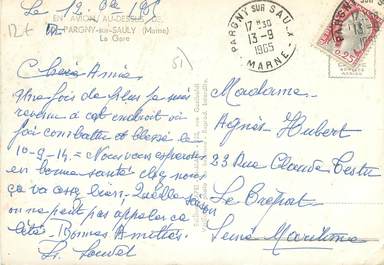 Le 12. 9bre 1965
EN AVION AU-DESSUS DE...
PARGNY-sur-SAULX (Marne)
La Gare
PARGNY SUR SAULX
17H30
13-9
1965
MARNE
51
Chère Amie,
Une fois de plus je suis
revenu à cet endroit où
j'ai combattu et blessé le
10-9-14. = Nous vous espérons
en bonne santé chez nous
ça va assez bien. Quelle saison
on ne peut pas appeler ça
l'été. Bonnes Amitiés.
Madame
Agnès Hubert
23 Rue Claude
Le Tréport
Seine Maritime